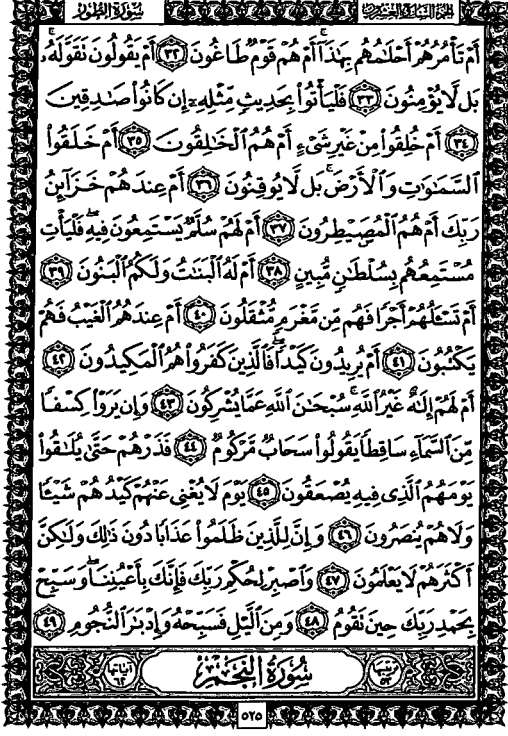 الجزء السابع والعشرون سُورَةُ الطُّورِ
أَمْ تَأْمُرُهُمْ أَحْلَٰمُهُم بِهَٰذَآ ۚ أَمْ هُمْ قَوْمٌ طَاغُونَ ٣٢ أَمْ يَقُولُونَ تَقَوَّلَهُۥ ۚ
بَل لَّا يُؤْمِنُونَ ٣٣ فَلْيَأْتُوا۟ بِحَدِيثٍ مِّثْلِهِۦٓ إِن كَانُوا۟ صَٰدِقِينَ
٣٤ أَمْ خُلِقُوا۟ مِنْ غَيْرِ شَىْءٍ أَمْ هُمُ ٱلْخَٰلِقُونَ ٣٥ أَمْ خَلَقُوا۟
ٱلسَّمَٰوَٰتِ وَٱلْأَرْضَ ۚ بَل لَّا يُوقِنُونَ ٣٦ أَمْ عِندَهُمْ خَزَآئِنُ
رَبِّكَ أَمْ هُمُ ٱلْمُصَۣيْطِرُونَ ٣٧ أَمْ لَهُمْ سُلَّمٌ يَسْتَمِعُونَ فِيهِ ۖ فَلْيَأْتِ
مُسْتَمِعُهُم بِسُلْطَٰنٍ مُّبِينٍ ٣٨ أَمْ لَهُ ٱلْبَنَٰتُ وَلَكُمُ ٱلْبَنُونَ ٣٩
أَمْ تَسْـَٔلُهُمْ أَجْرًا فَهُم مِّن مَّغْرَمٍ مُّثْقَلُونَ ٤٠ أَمْ عِندَهُمُ ٱلْغَيْبُ فَهُمْ
يَكْتُبُونَ ٤١ أَمْ يُرِيدُونَ كَيْدًا ۖ فَٱلَّذِينَ كَفَرُوا۟ هُمُ ٱلْمَكِيدُونَ ٤٢
أَمْ لَهُمْ إِلَٰهٌ غَيْرُ ٱللَّهِ ۚ سُبْحَٰنَ ٱللَّهِ عَمَّا يُشْرِكُونَ ٤٣ وَإِن يَرَوْا۟ كِسْفًا
مِّنَ ٱلسَّمَآءِ سَاقِطًا يَقُولُوا۟ سَحَابٌ مَّرْكُومٌ ٤٤ فَذَرْهُمْ حَتَّىٰ يُلَٰقُوا۟
يَوْمَهُمُ ٱلَّذِى فِيهِ يُصْعَقُونَ ٤٥ يَوْمَ لَا يُغْنِى عَنْهُمْ كَيْدُهُمْ شَيْـًٔا
وَلَا هُمْ يُنصَرُونَ ٤٦ وَإِنَّ لِلَّذِينَ ظَلَمُوا۟ عَذَابًا دُونَ ذَٰلِكَ وَلَٰكِنَّ
أَكْثَرَهُمْ لَا يَعْلَمُونَ ٤٧ وَٱصْبِرْ لِحُكْمِ رَبِّكَ فَإِنَّكَ بِأَعْيُنِنَا ۖ وَسَبِّحْ
بِحَمْدِ رَبِّكَ حِينَ تَقُومُ ٤٨ وَمِنَ ٱلَّيْلِ فَسَبِّحْهُ وَإِدْبَٰرَ ٱلنُّجُومِ ٤٩
ترتيبها ٥٣ سُورَةُ النَّجْمِ آياتها ٦٢
٥٢٥